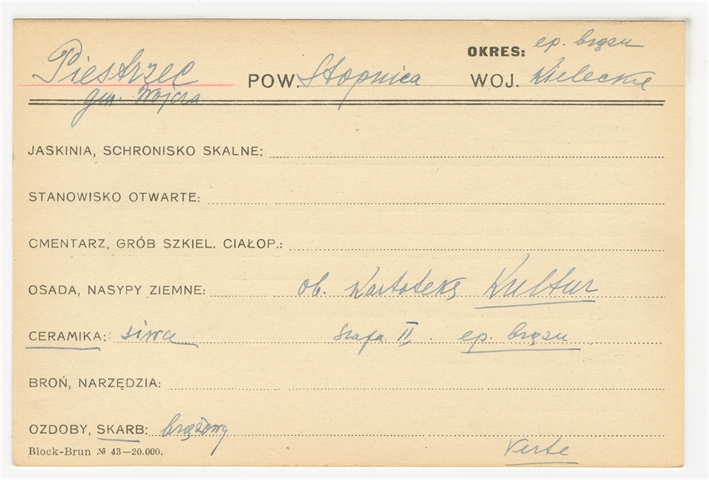 OKRES: ep. brązu
Piestrzec POW. Stopnica WOJ. Kieleckie
gm. Wójcza
JASKINIA, SCHRONISKO SKALNE:
STANOWISKO OTWARTE:
CMENTARZ, GRÓB SZKIEL. CIAŁOP.:
OSADA, NASYPY ZIEMNE: ob. Kartotekę Kultur
CERAMIKA: siwa Szafa II. ep. brązu
BROŃ, NARZĘDZIA:
OZDOBY, SKARB: brązowy
Block-Brun № 43—20.000. Verte